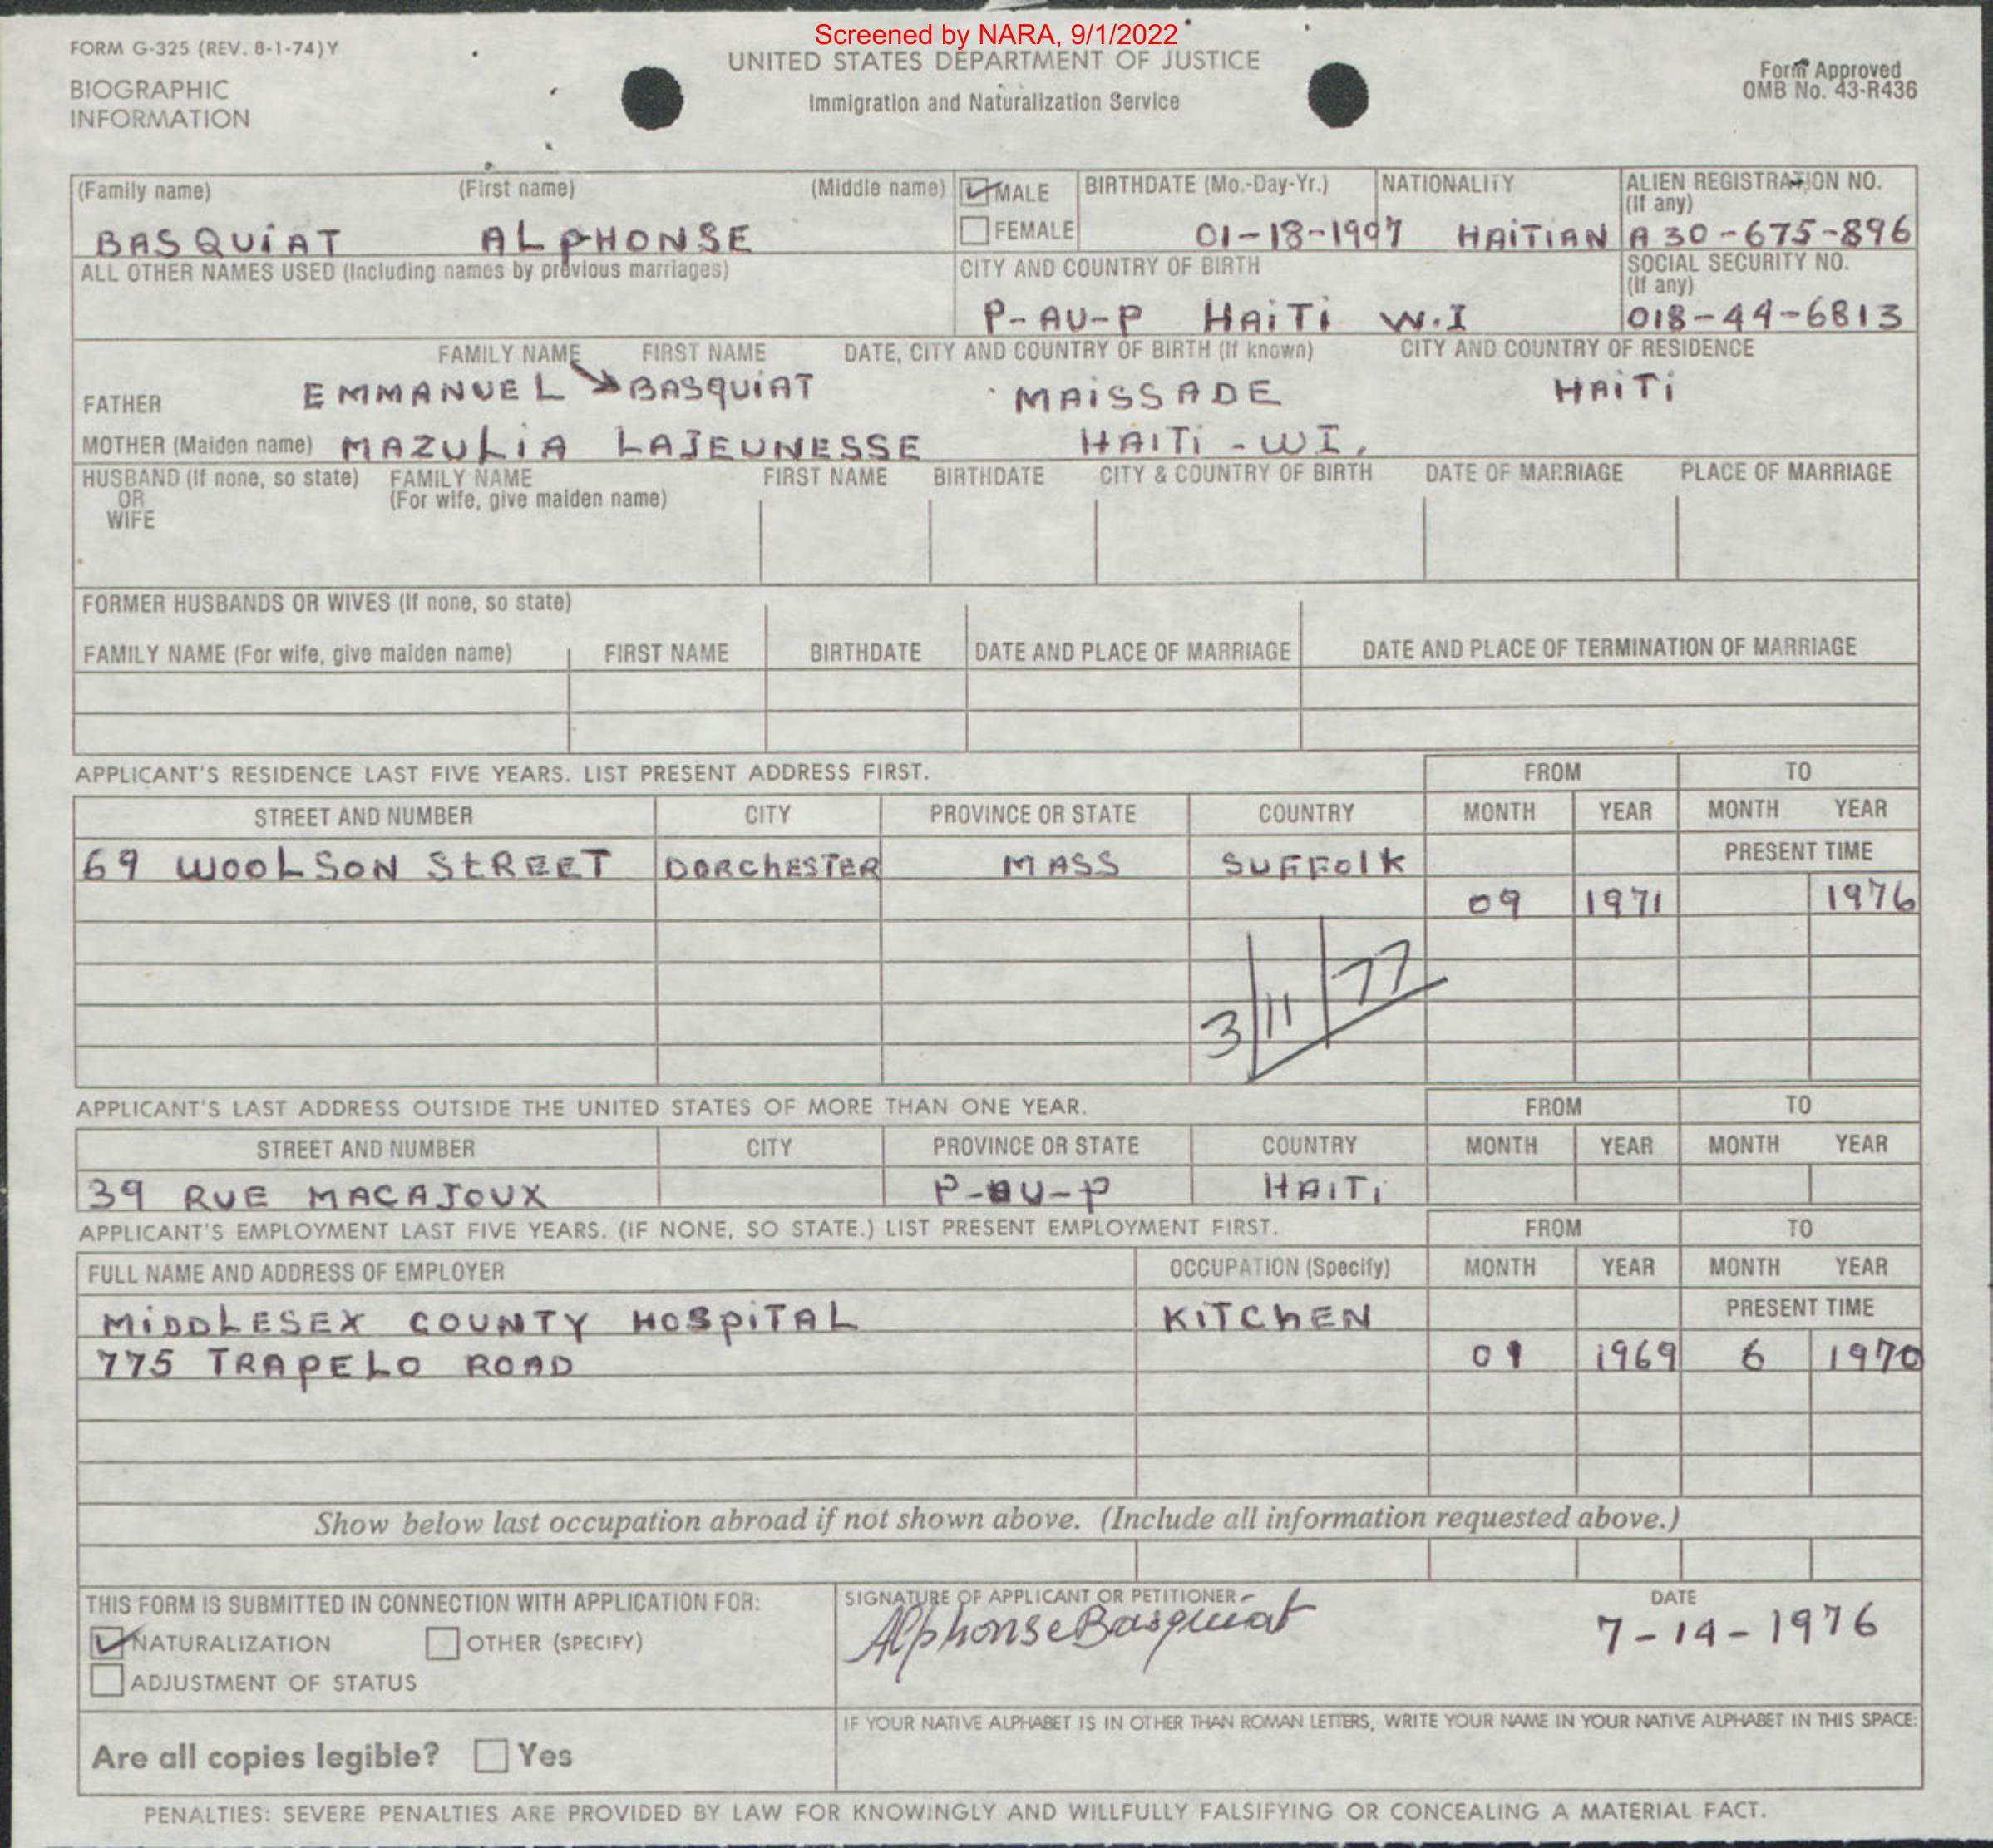 Screened by NARA, 9/1/2022
FORM G-325 (REV. 8-1-74)Y
UNITED STATES DEPARTMENT OF JUSTICE
Form Approved
OMB No. 43-R436
BIOGRAPHIC
INFORMATION
Immigration and Naturalization Service
(Family name) (First name) (Middle name) MALE BIRTHDATE (Mo.-Day-Yr.) NATIONALITY ALIEN REGISTRATION NO.
(If any)
BASQUiAT ALPHONSE FEMALE 01-18-1907 HAiTiAN A 30-675-896
ALL OTHER NAMES USED (Including names by previous marriages) CITY AND COUNTRY OF BIRTH SOCIAL SECURITY NO.
(If any)
P-AU-P HAiTi W.I 018-44-6813
FAMILY NAME FIRST NAME DATE, CITY AND COUNTRY OF BIRTH (If known) CITY AND COUNTRY OF RESIDENCE
FATHER EMMANUEL BASQUiAT MAiSSADE HAiTi
MOTHER (Maiden name) MAZULiA LAJEUNESSE HAITi - WI.
HUSBAND (If none, so state) FAMILY NAME FIRST NAME BIRTHDATE CITY & COUNTRY OF BIRTH DATE OF MARRIAGE PLACE OF MARRIAGE
OR (For wife, give maiden name)
WIFE
FORMER HUSBANDS OR WIVES (If none, so state)
FAMILY NAME (For wife, give maiden name) FIRST NAME BIRTHDATE DATE AND PLACE OF MARRIAGE DATE AND PLACE OF TERMINATION OF MARRIAGE
APPLICANT'S RESIDENCE LAST FIVE YEARS. LIST PRESENT ADDRESS FIRST. FROM TO
STREET AND NUMBER CITY PROVINCE OR STATE COUNTRY MONTH YEAR MONTH YEAR
69 WOOLSON STREET DORChESTER MASS SUFFolk PRESENT TIME
09 1971 1976
3/11/77
APPLICANT'S LAST ADDRESS OUTSIDE THE UNITED STATES OF MORE THAN ONE YEAR. FROM TO
STREET AND NUMBER CITY PROVINCE OR STATE COUNTRY MONTH YEAR MONTH YEAR
39 RUE MACAJOUX P-AU-P HAITi
APPLICANT'S EMPLOYMENT LAST FIVE YEARS. (IF NONE, SO STATE.) LIST PRESENT EMPLOYMENT FIRST. FROM TO
FULL NAME AND ADDRESS OF EMPLOYER OCCUPATION (Specify) MONTH YEAR MONTH YEAR
MiDDLESEX COUNTY HOSPiTAL KiTChEN PRESENT TIME
775 TRAPELO ROAD 09 1969 6 1970
Show below last occupation abroad if not shown above. (Include all information requested above.)
THIS FORM IS SUBMITTED IN CONNECTION WITH APPLICATION FOR: SIGNATURE OF APPLICANT OR PETITIONER DATE
NATURALIZATION OTHER (SPECIFY) Alphonse Basquiat 7-14-1976
ADJUSTMENT OF STATUS
IF YOUR NATIVE ALPHABET IS IN OTHER THAN ROMAN LETTERS, WRITE YOUR NAME IN YOUR NATIVE ALPHABET IN THIS SPACE:
Are all copies legible? Yes
PENALTIES: SEVERE PENALTIES ARE PROVIDED BY LAW FOR KNOWINGLY AND WILLFULLY FALSIFYING OR CONCEALING A MATERIAL FACT.